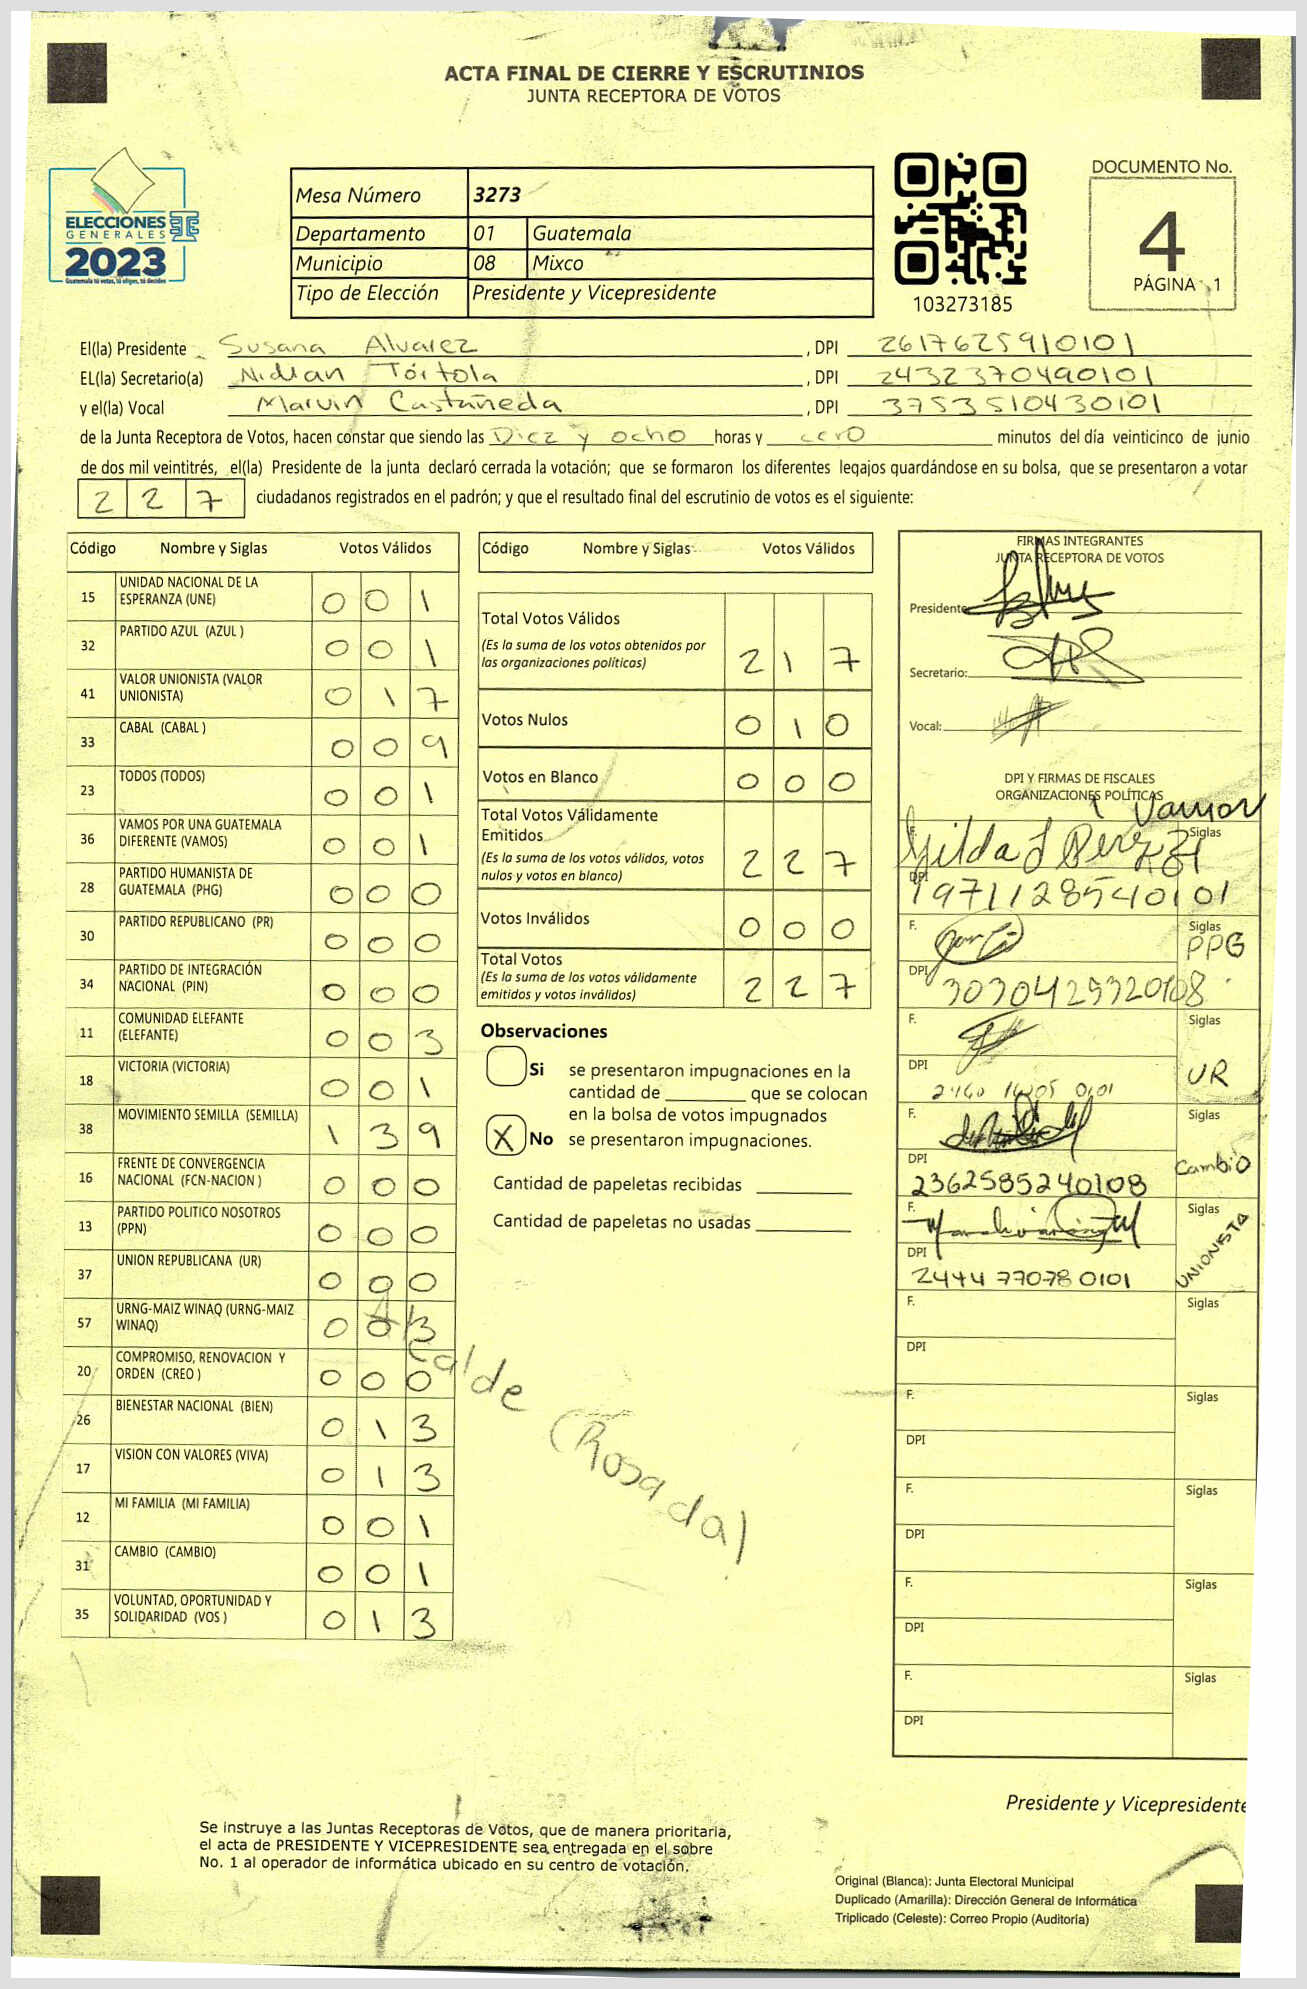 ACTA FINAL DE CIERRE Y ESCRUTINIOS
JUNTA RECEPTORA DE VOTOS
ELECCIONES
GENERALES
2023
Guatemala tú votas, tú eliges, tú decides
Mesa Número 3273
Departamento 01 Guatemala
Municipio 08 Mixco
Tipo de Elección Presidente y Vicepresidente
103273185
DOCUMENTO No.
4
PÁGINA 1
El(la) Presidente Susana Alvarez , DPI 2617625910101
EL(la) Secretario(a) Tórtola , DPI 2432370490101
y el(la) Vocal Marvin Castañeda , DPI 3753510430101
de la Junta Receptora de Votos, hacen constar que siendo las Diez y ocho horas y cero minutos del día veinticinco de junio
de dos mil veintitrés, el(la) Presidente de la junta declaró cerrada la votación; que se formaron los diferentes legajos guardándose en su bolsa, que se presentaron a votar
227 ciudadanos registrados en el padrón; y que el resultado final del escrutinio de votos es el siguiente:
Código Nombre y Siglas Votos Válidos
15 UNIDAD NACIONAL DE LA ESPERANZA (UNE) 0 0 1
32 PARTIDO AZUL (AZUL ) 0 0 1
41 VALOR UNIONISTA (VALOR UNIONISTA) 0 1 7
33 CABAL (CABAL ) 0 0 9
23 TODOS (TODOS) 0 0 1
36 VAMOS POR UNA GUATEMALA DIFERENTE (VAMOS) 0 0 1
28 PARTIDO HUMANISTA DE GUATEMALA (PHG) 0 0 0
30 PARTIDO REPUBLICANO (PR) 0 0 0
34 PARTIDO DE INTEGRACIÓN NACIONAL (PIN) 0 0 0
11 COMUNIDAD ELEFANTE (ELEFANTE) 0 0 3
18 VICTORIA (VICTORIA) 0 0 1
38 MOVIMIENTO SEMILLA (SEMILLA) 1 3 9
16 FRENTE DE CONVERGENCIA NACIONAL (FCN-NACION ) 0 0 0
13 PARTIDO POLITICO NOSOTROS (PPN) 0 0 0
37 UNION REPUBLICANA (UR) 0 0 0
57 URNG-MAIZ WINAQ (URNG-MAIZ WINAQ) 0 0 3
20 COMPROMISO, RENOVACION Y ORDEN (CREO ) 0 0 0
26 BIENESTAR NACIONAL (BIEN) 0 1 3
17 VISION CON VALORES (VIVA) 0 1 3
12 MI FAMILIA (MI FAMILIA) 0 0 1
31 CAMBIO (CAMBIO) 0 0 1
35 VOLUNTAD, OPORTUNIDAD Y SOLIDARIDAD (VOS ) 0 1 3
Alcalde (Rosada)
Código Nombre y Siglas Votos Válidos
Total Votos Válidos
(Es la suma de los votos obtenidos por
las organizaciones políticas) 2 1 7
Votos Nulos 0 1 0
Votos en Blanco 0 0 0
Total Votos Válidamente
Emitidos
(Es la suma de los votos válidos, votos
nulos y votos en blanco) 2 2 7
Votos Inválidos 0 0 0
Total Votos
(Es la suma de los votos válidamente
emitidos y votos inválidos) 2 2 7
Observaciones
Si se presentaron impugnaciones en la
cantidad de ________ que se colocan
en la bolsa de votos impugnados
X No se presentaron impugnaciones.
Cantidad de papeletas recibidas
Cantidad de papeletas no usadas
FIRMAS INTEGRANTES
JUNTA RECEPTORA DE VOTOS
Presidente:
Secretario:
Vocal:
DPI Y FIRMAS DE FISCALES
ORGANIZACIONES POLÍTICAS
Vamos
F. Gilda Siglas
DPI 1971128540101
F. Siglas
PPG
DPI
F. Siglas
DPI UR
F. Siglas
DPI Cambio
2362585240108
F. Siglas
DPI UNIONISTA
2444 77078 0101
F. Siglas
DPI
F. Siglas
DPI
F. Siglas
DPI
F. Siglas
DPI
F. Siglas
DPI
Presidente y Vicepresidente
Se instruye a las Juntas Receptoras de Votos, que de manera prioritaria,
el acta de PRESIDENTE Y VICEPRESIDENTE sea entregada en el sobre
No. 1 al operador de informática ubicado en su centro de votación.
Original (Blanca): Junta Electoral Municipal
Duplicado (Amarilla): Dirección General de Informática
Triplicado (Celeste): Correo Propio (Auditoría)